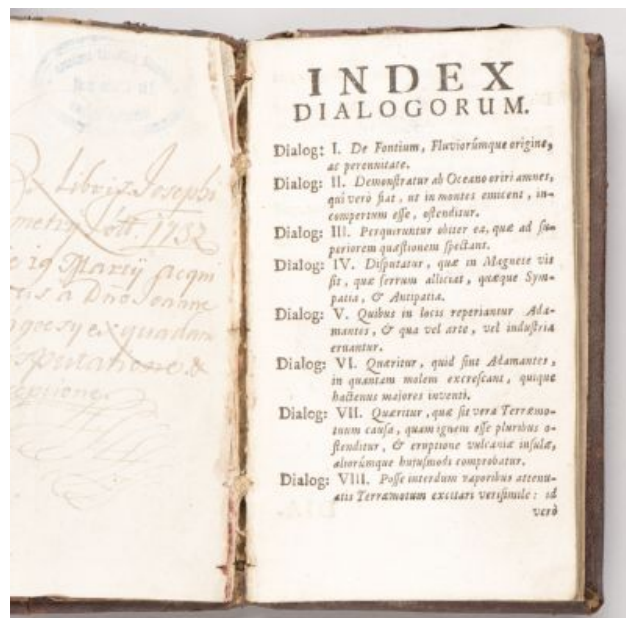 Ex Libris Josephi
1732
19 Martij acqui
a Dno Joanne
ex quadam
INDEX
DIALOGORUM.
Dialog: I. De Fontium, Fluviorúmque origine,
ac perennitate.
Dialog: II. Demonſtratur ab Oceano oriri amnes,
qui verò fiat, ut in montes emicent, in-
compertum eſſe, oſtenditur.
Dialog: III. Perquiruntur obiter ea, quæ ad ſu-
periorem quæſtionem ſpectant.
Dialog: IV. Diſputatur, quæ in Magnete vis
ſit, quæ ferrum alliciat, quæque Sym-
patia, & Antipatia.
Dialog: V. Quibus in locis reperiantur Ada-
mantes, & qua vel arte, vel induſtria
eruantur.
Dialog: VI. Quæritur, quid ſint Adamantes,
in quantam molem excreſcant, quique
hactenus majores inventi.
Dialog: VII. Quæritur, quæ ſit vera Terræmo-
tuum cauſa, quam ignem eſſe pluribus o-
ſtenditur, & eruptione vulcaniæ inſulæ,
aliorúmque hujuſmodi comprobatur.
Dialog: VIII. Poſſe interdum vaporibus attenu-
atis Terræmotum excitari veriſimile: id
verò